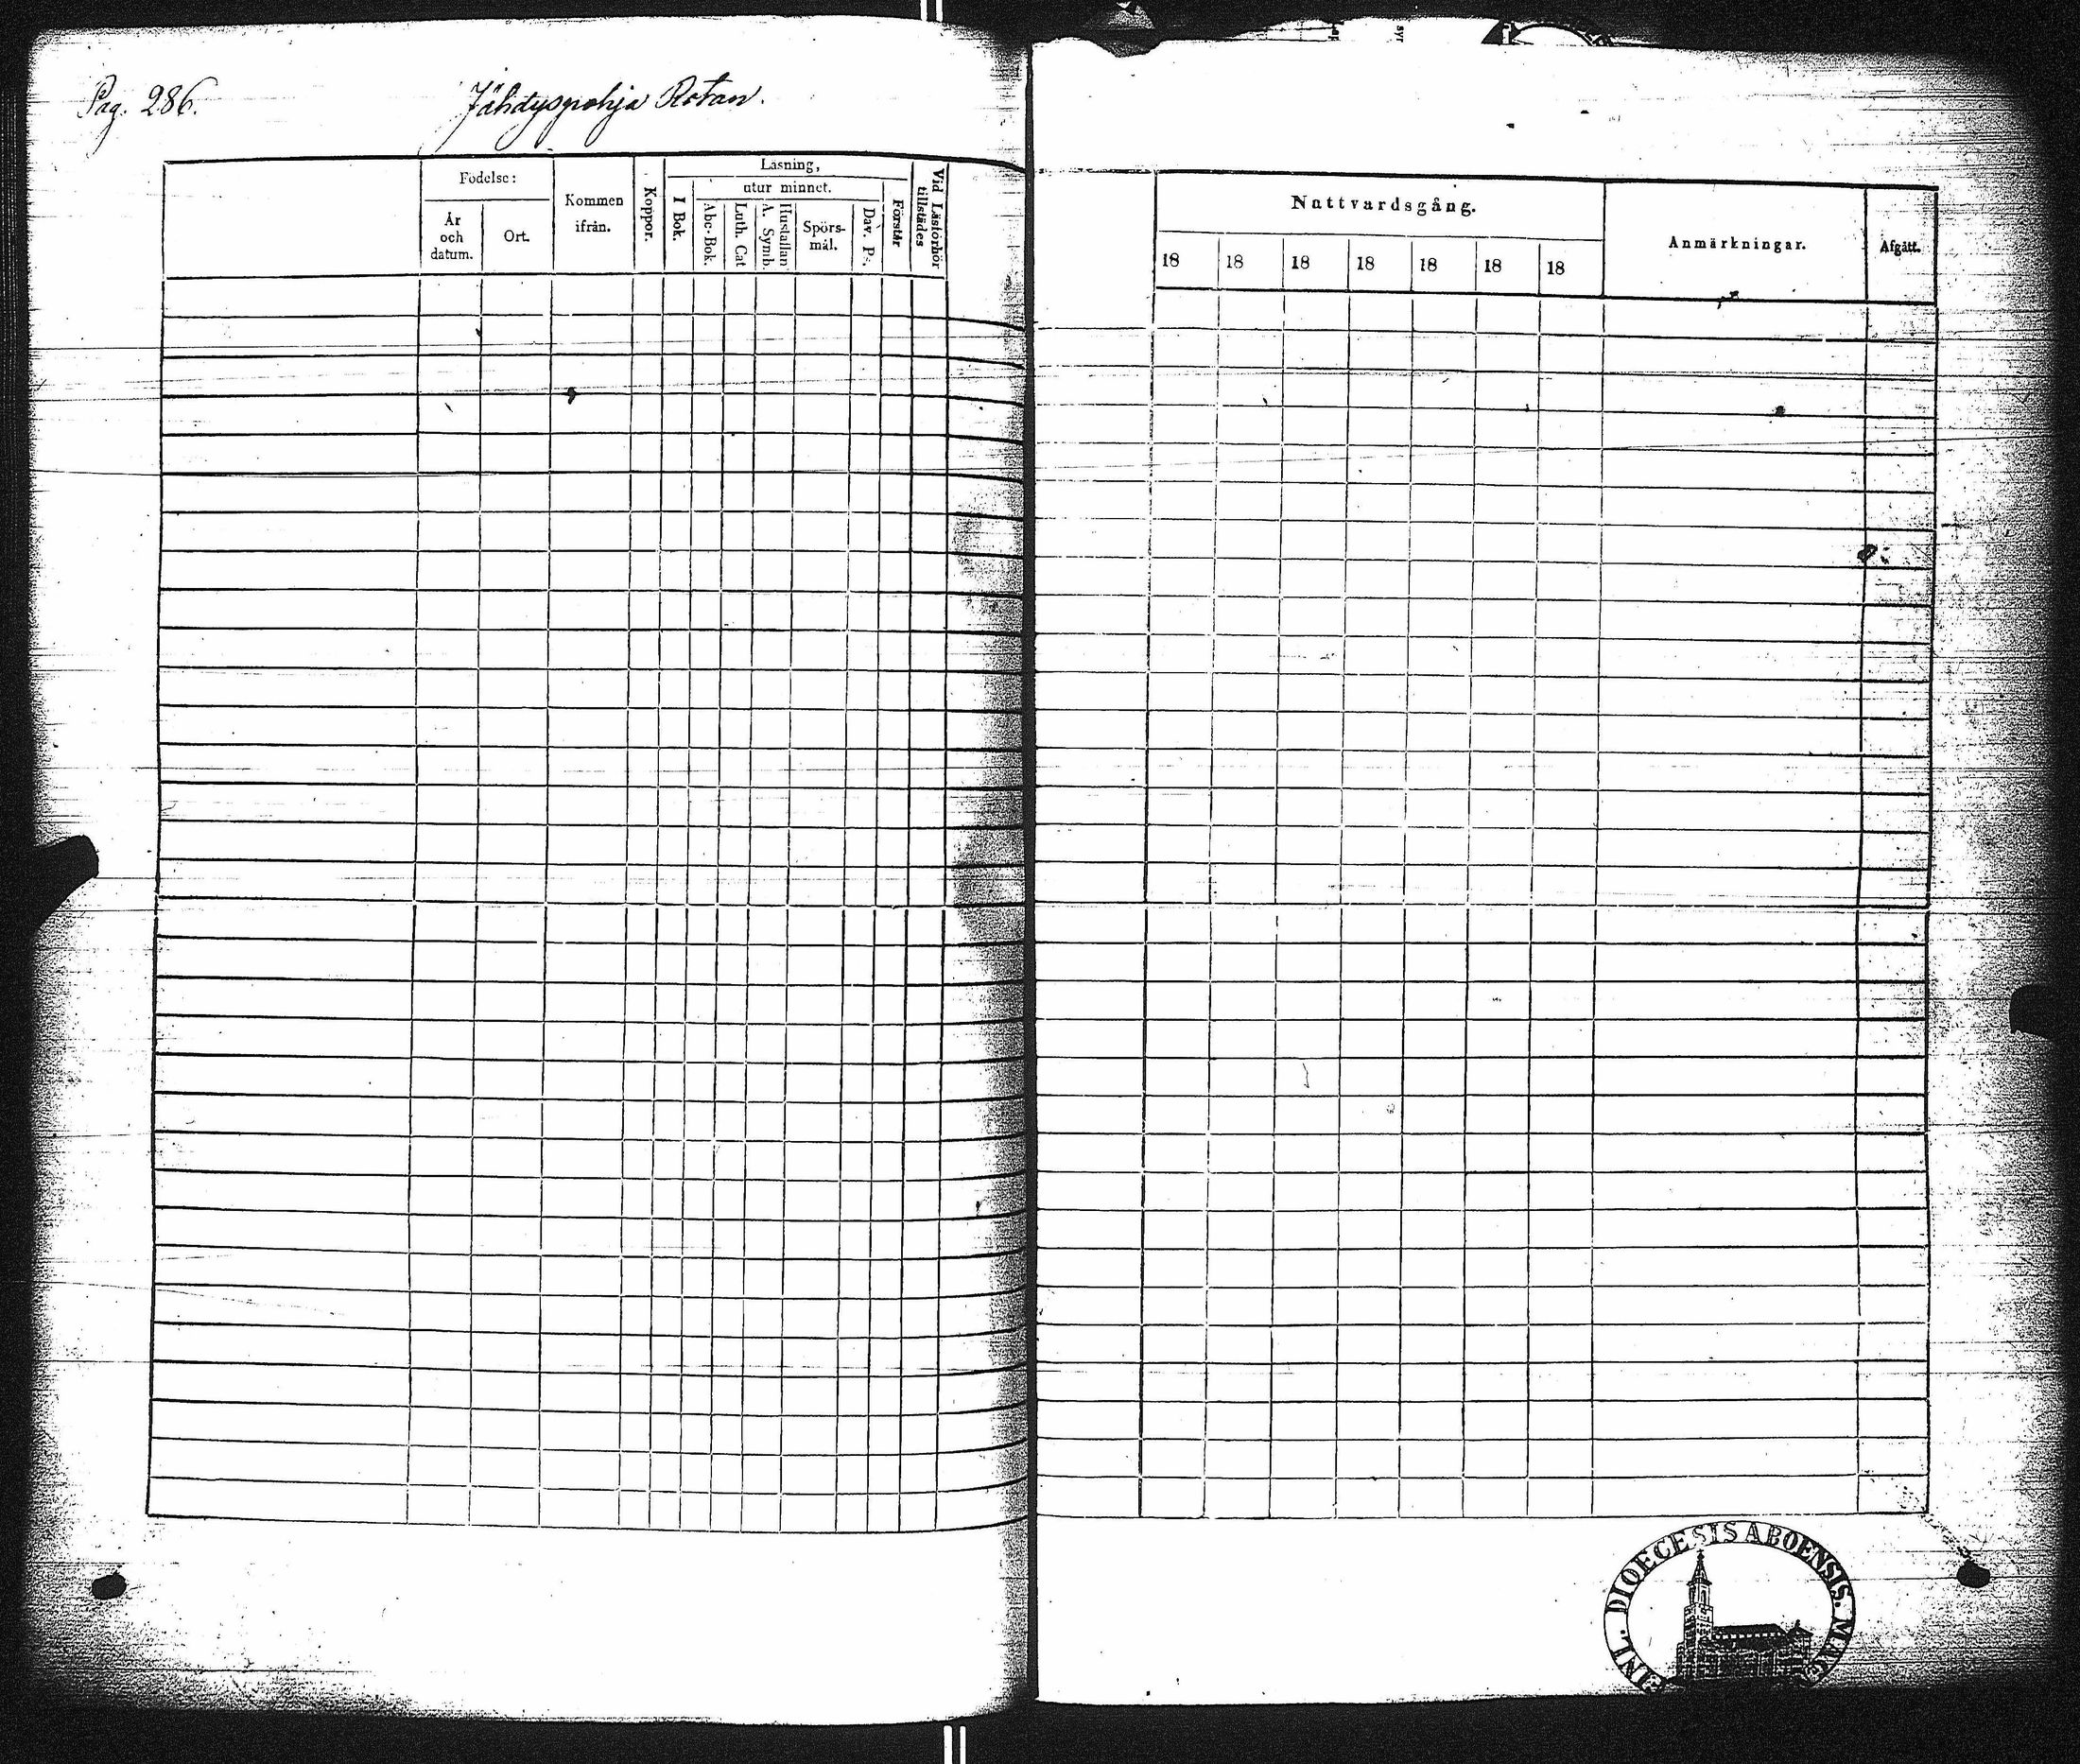 Pag. 286.
Jähdyspohja Rotan.
Födelse:
År och datum.
Ort.
Kommen ifrån.
Koppor.
Läsning,
I Bok.
utur minnet.
Abc-Bok.
Luth. Cat
Hustaflan A. Symb.
Spörsmål.
Dav. Ps.
Förstår
Vid Läsförhör tillstädes
Nattvardsgång.
18 18 18 18 18 18 18
Anmärkningar.
Afgått.
DIOECESIS ABOENSIS.